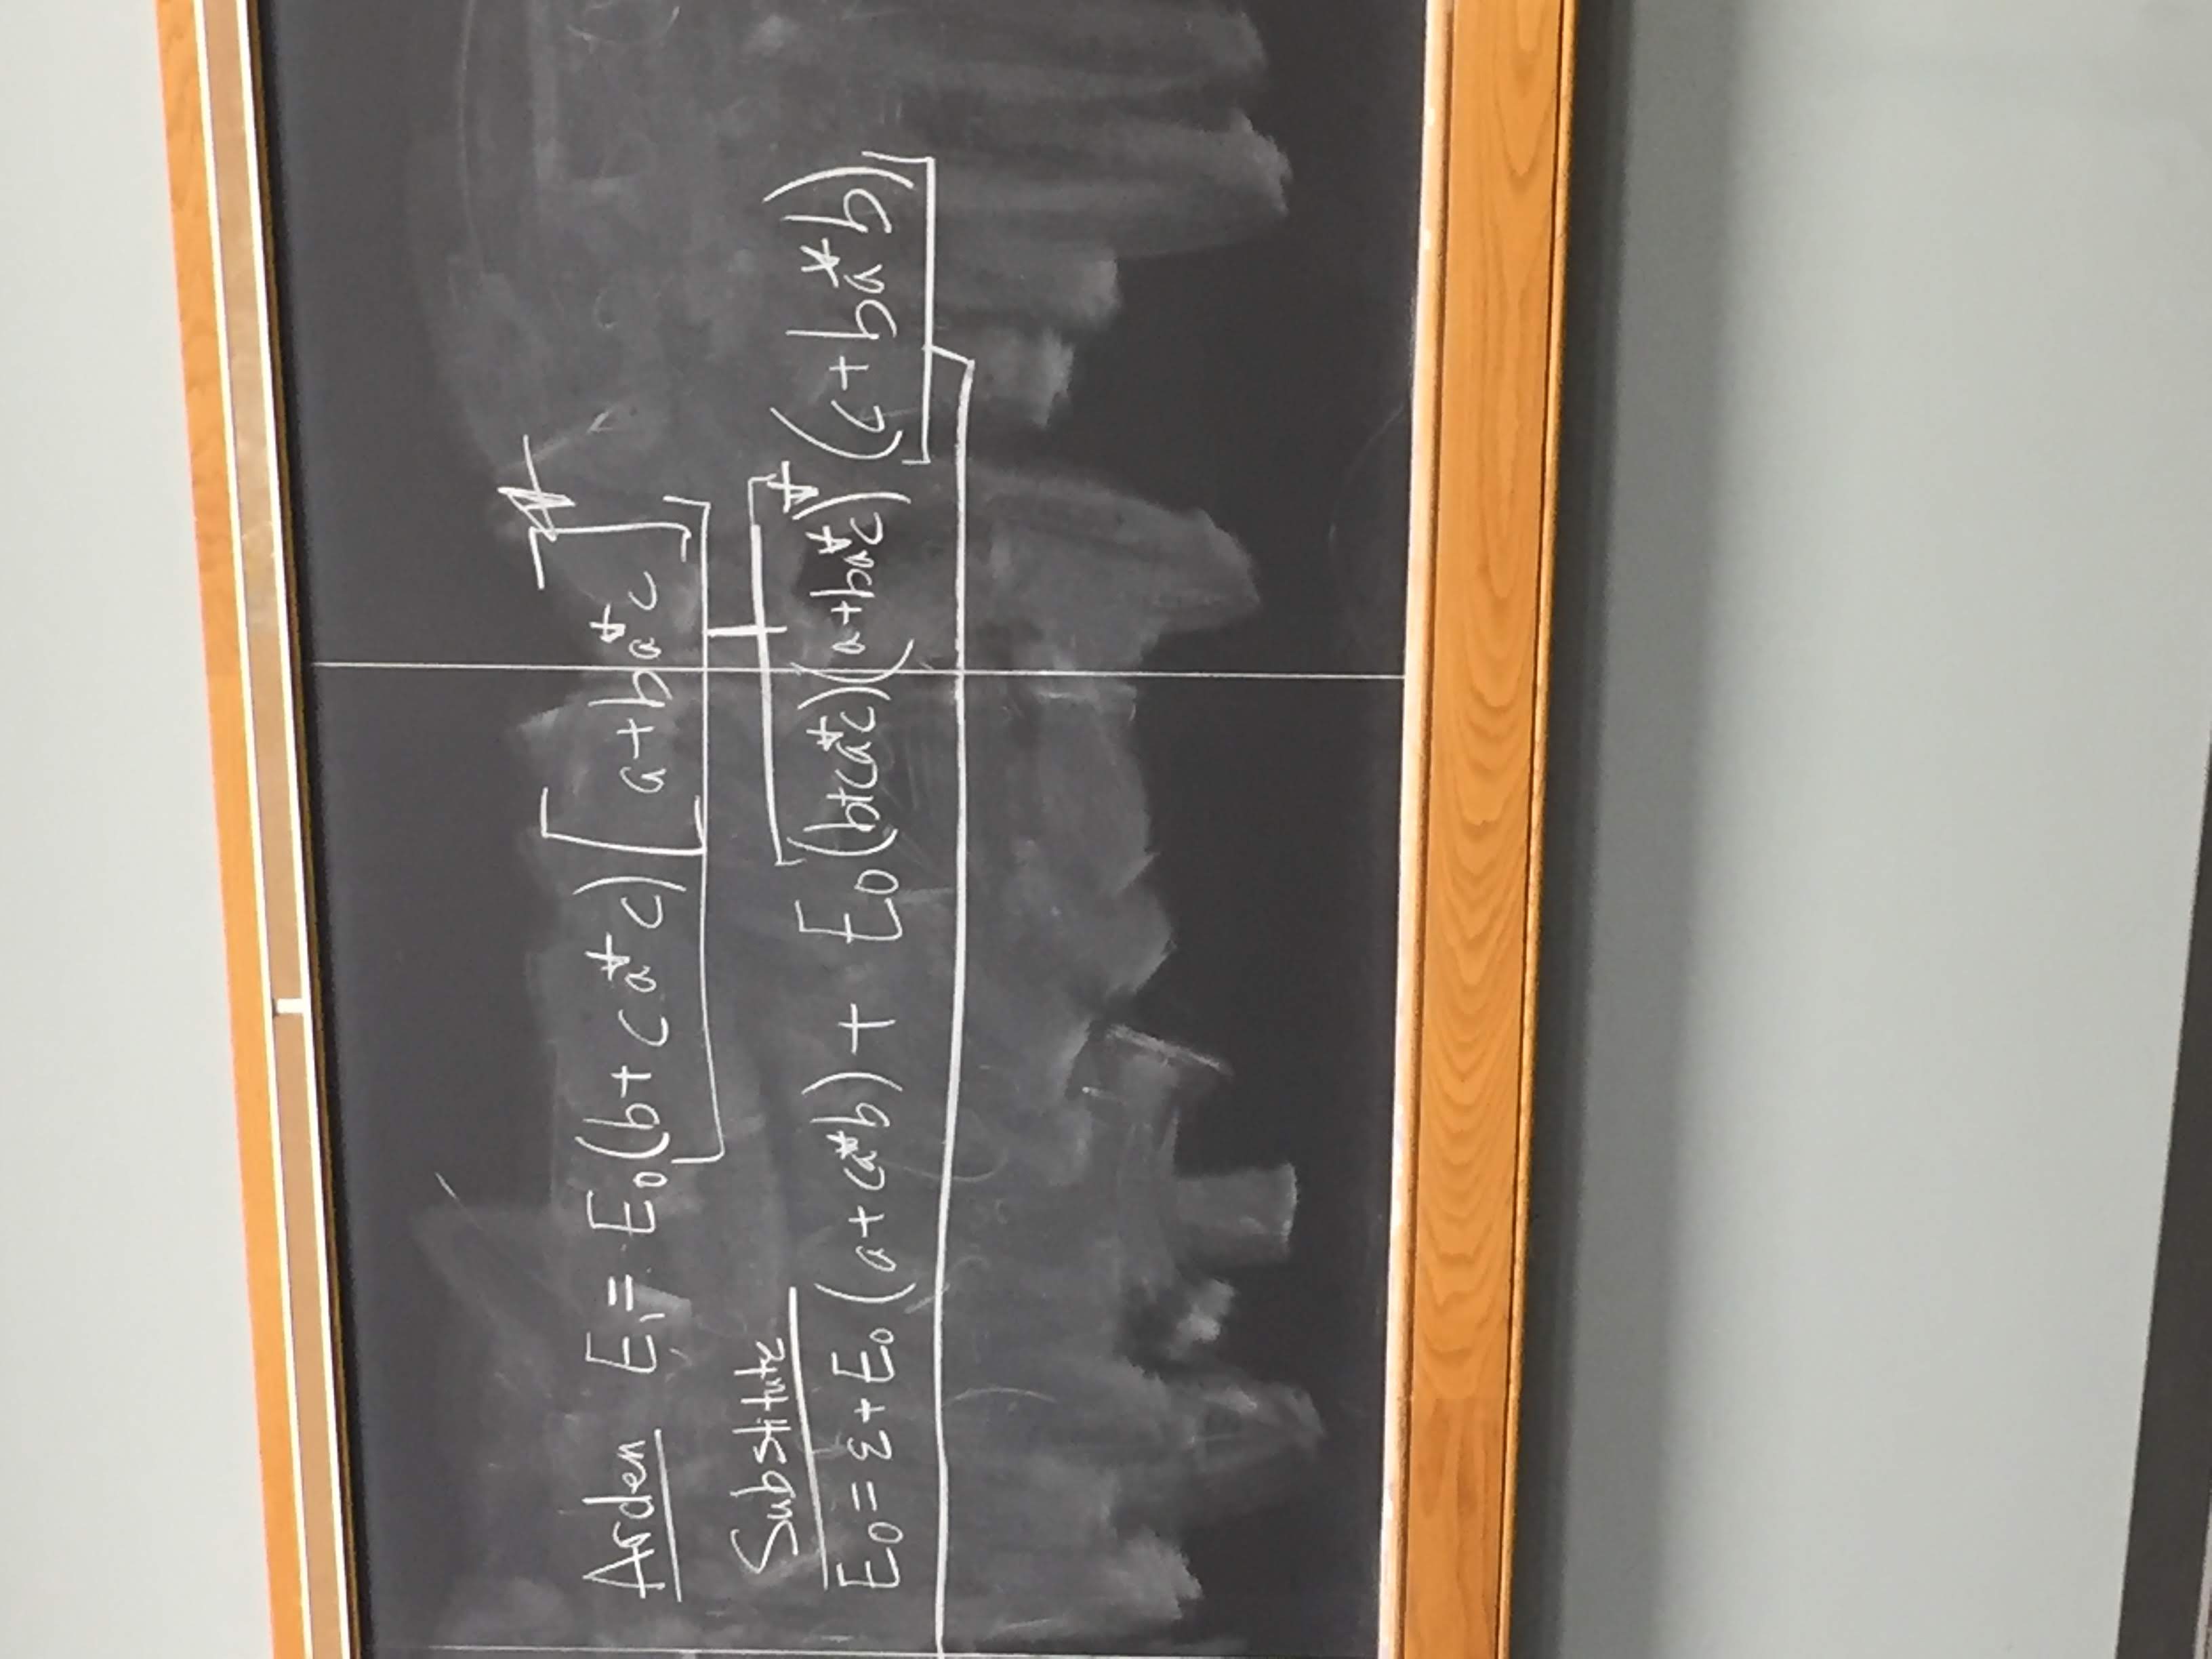 Arden E₁ = E₀(b + c a* c)[a + b a* c]*
Substitute
E₀ = ε + E₀ (a + ca*b) + E₀(b+ca*c)(a+ba*c)*(c+ba*b)